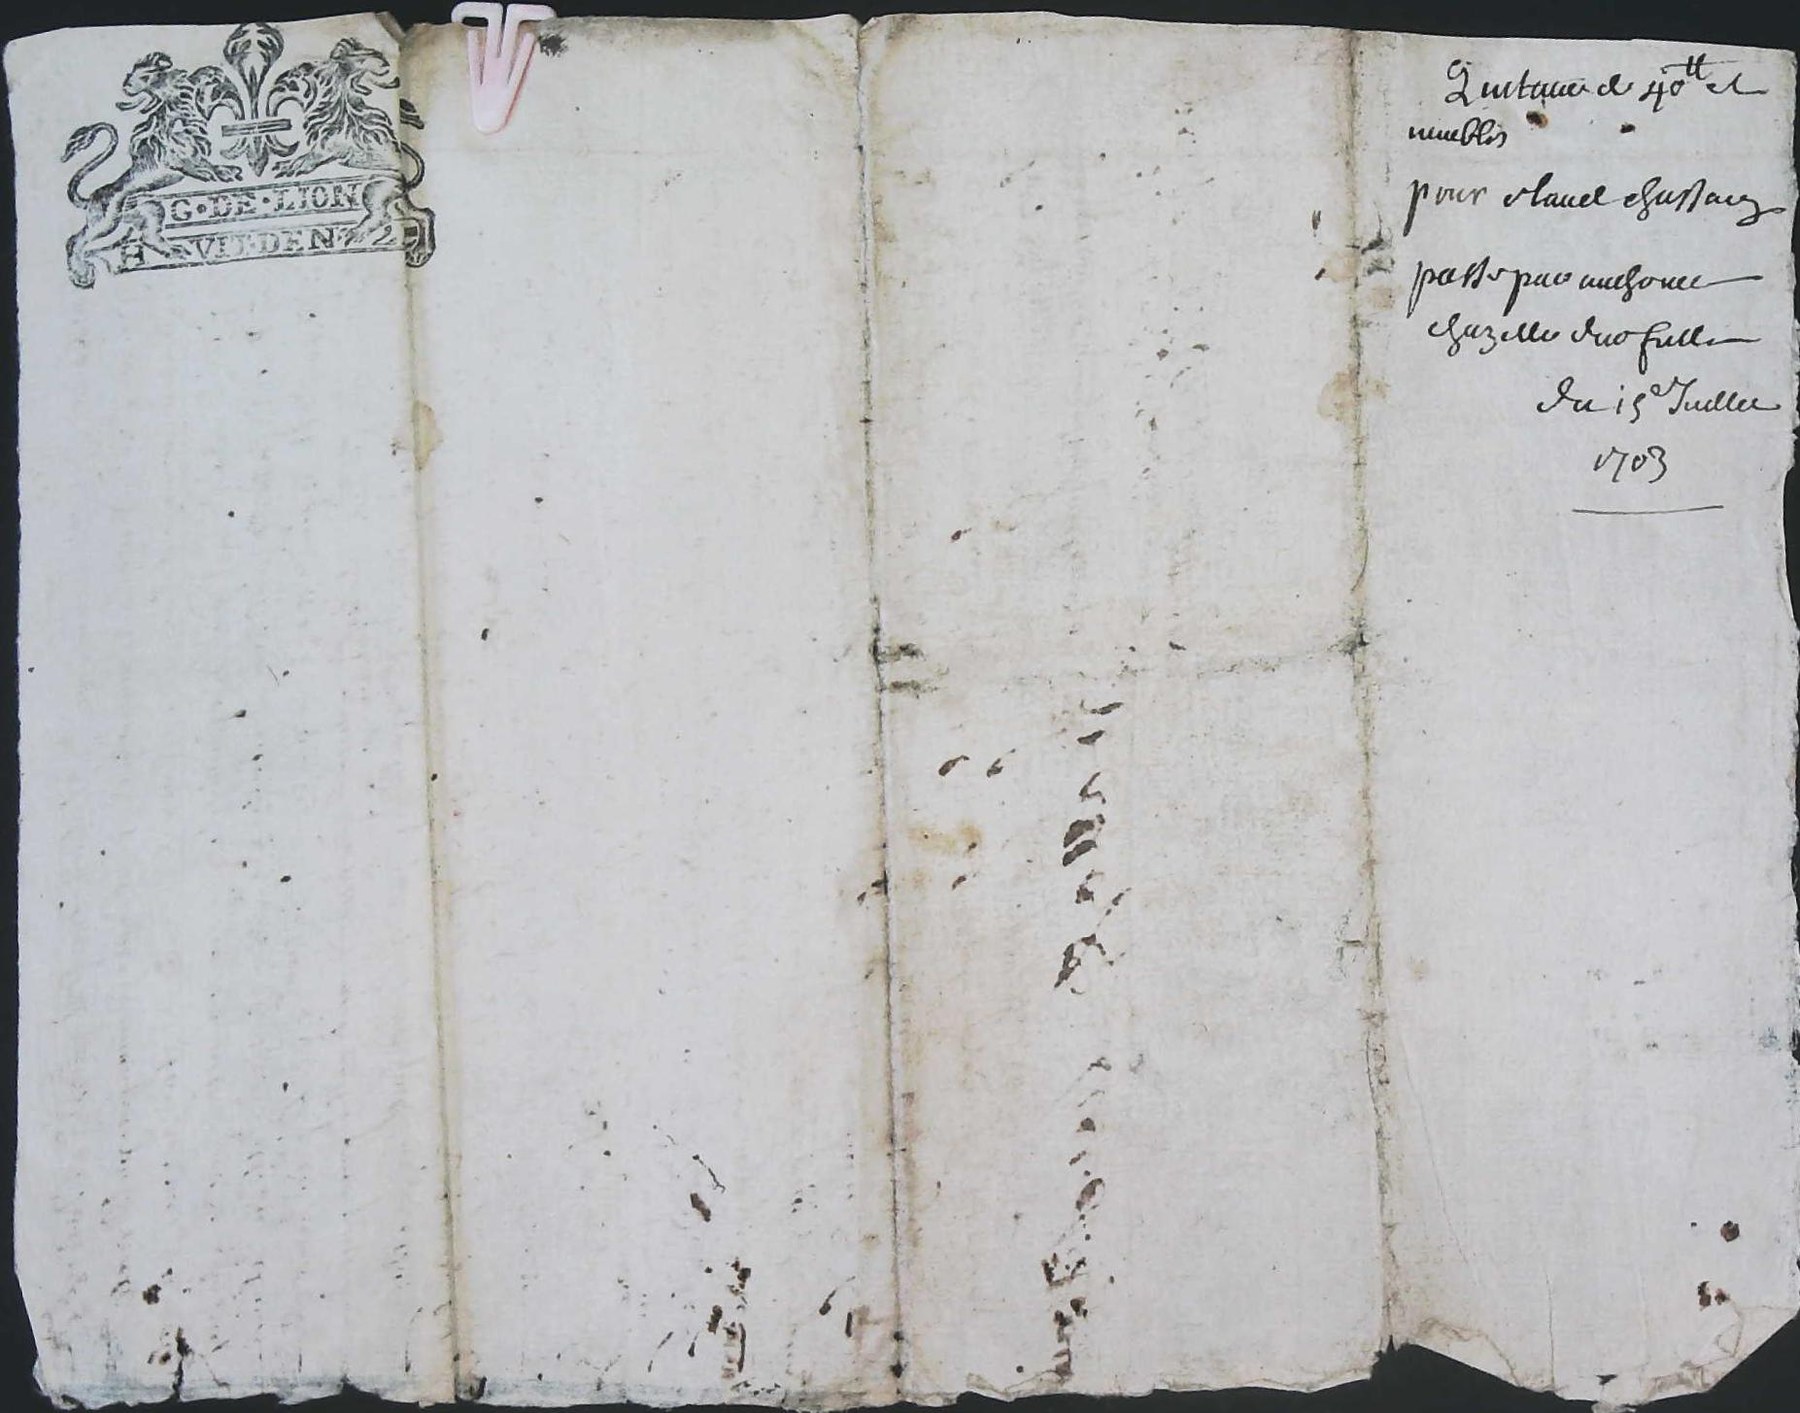 G·DE·LION
H VIT·DEN·
Quitance de 40tt et
meubles
pour claude chassaing
passe par anthoine
chazelle
du 15e Juillet
1703